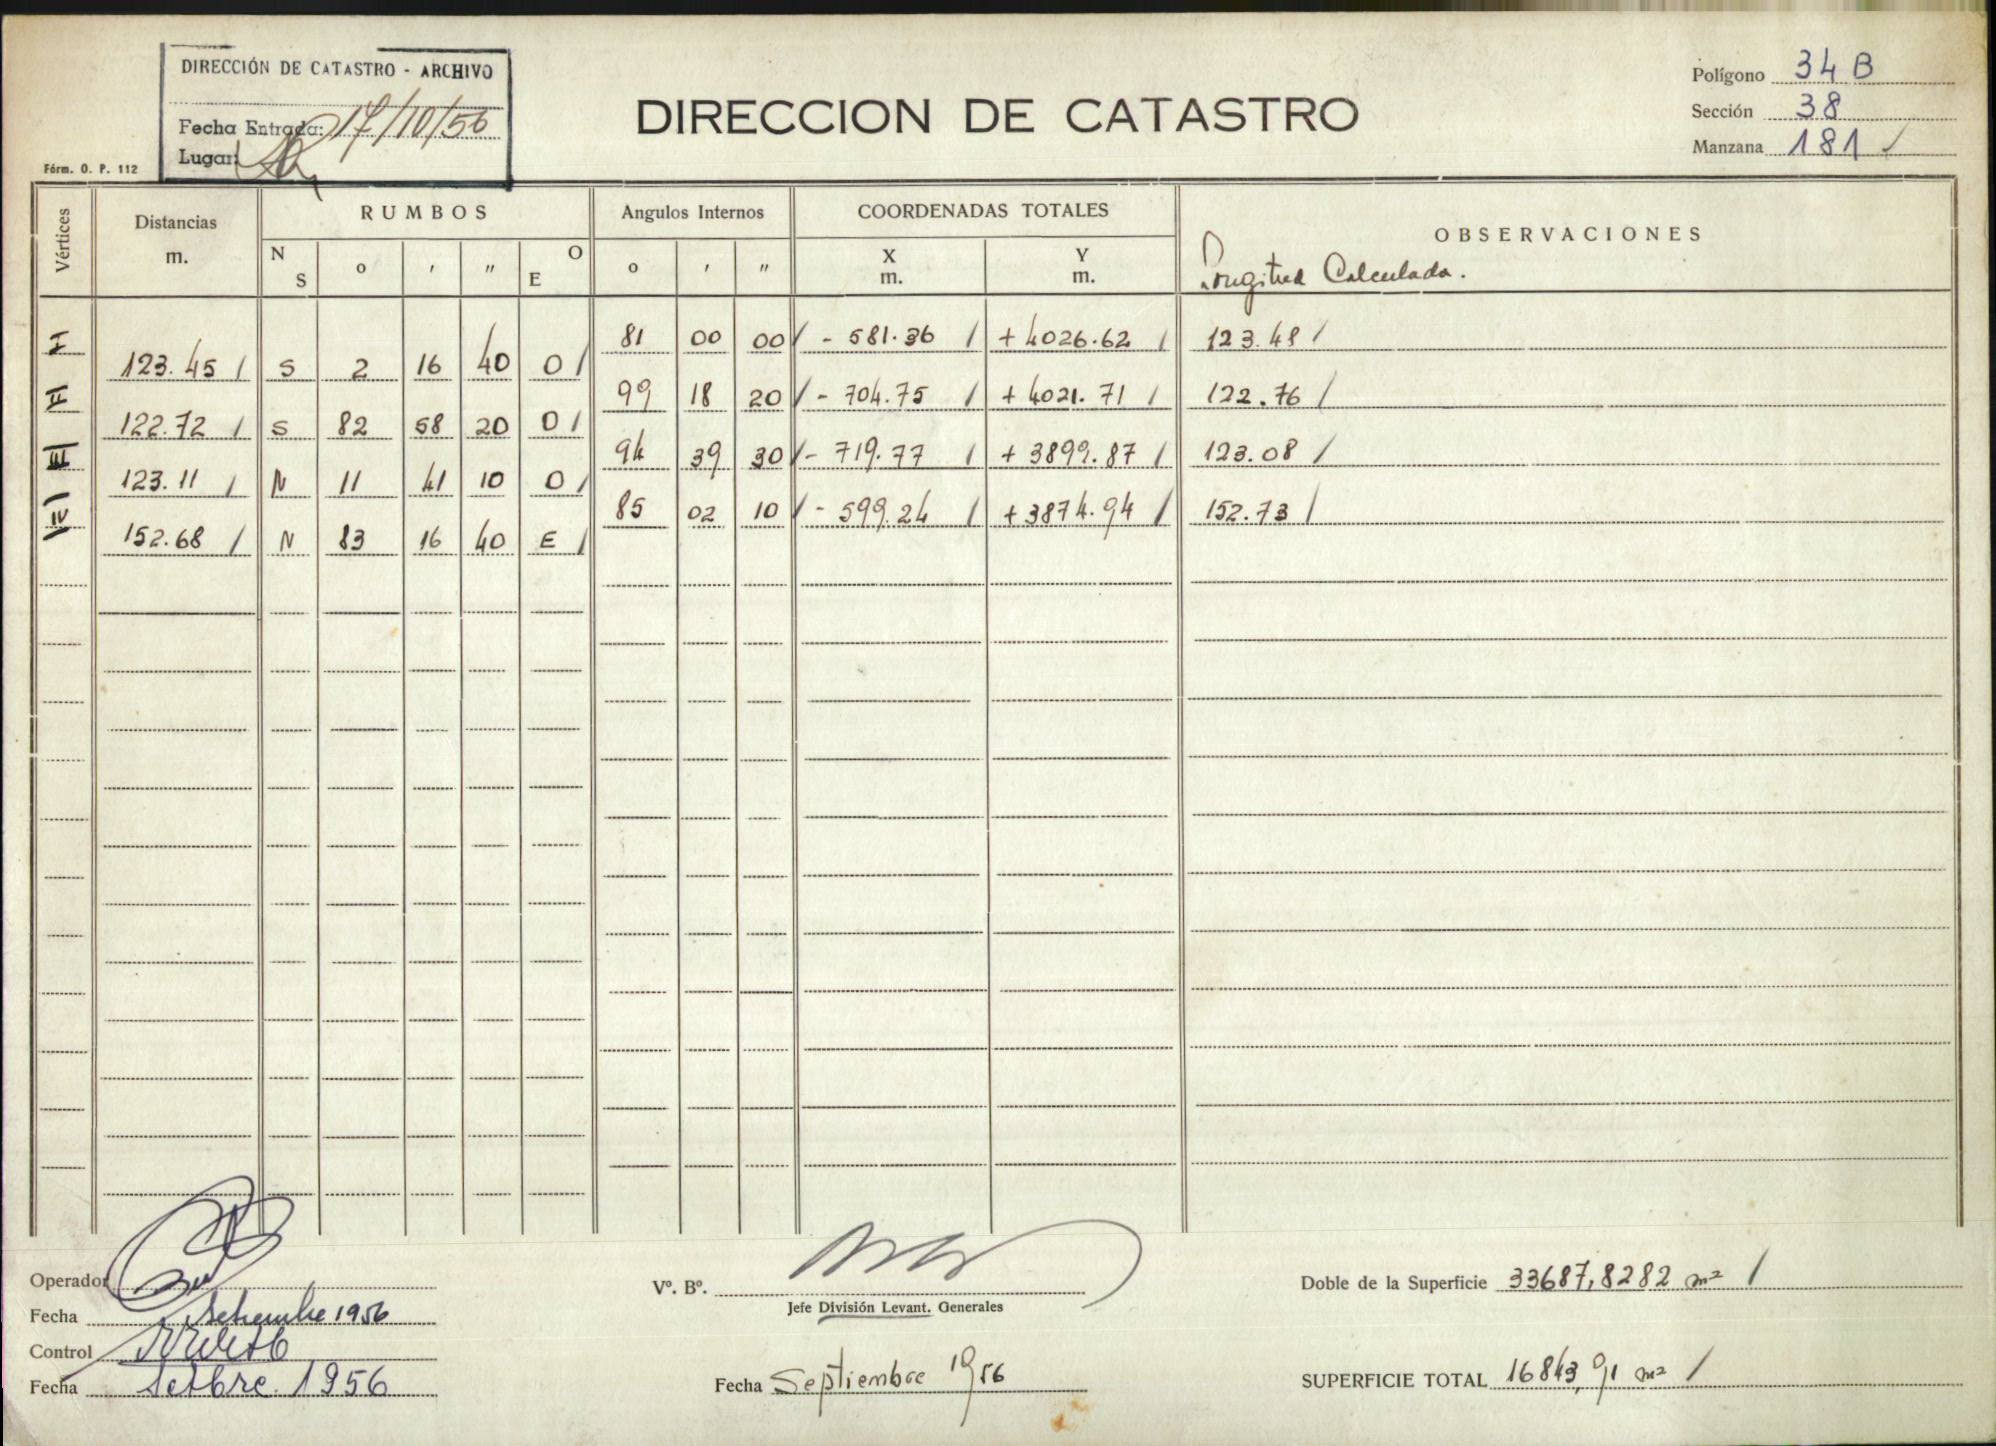 DIRECCIÓN DE CATASTRO - ARCHIVO
Fecha Entrada: 17/10/56
Lugar:
Fórm. O. P. 112
DIRECCION DE CATASTRO
Polígono 34 B
Sección 38
Manzana 181 /
Vértices
Distancias m.
RUMBOS
N S o ′ ″ O E
Angulos Internos
o ′ ″
COORDENADAS TOTALES
X m. Y m.
OBSERVACIONES
Longitud Calculada.
I 81 00 00 / - 581.36 / + 4026.62 / 123.48 /
123.45 / S 2 16 40 O /
II 99 18 20 / - 704.75 / + 4021.71 / 122.76 /
122.72 / S 82 58 20 O /
III 94 39 30 / - 719.77 / + 3899.87 / 123.08 /
123.11 / N 11 41 10 O /
IV 85 02 10 / - 599.24 / + 3874.94 / 152.73 /
152.68 / N 83 16 40 E /
Operador
Fecha Setiembre 1956
Control
Fecha Setbre. 1956
Vº. Bº.
Jefe División Levant. Generales
Fecha Septiembre 1956
Doble de la Superficie 33687,8282 m² /
SUPERFICIE TOTAL 16843,91 m² /